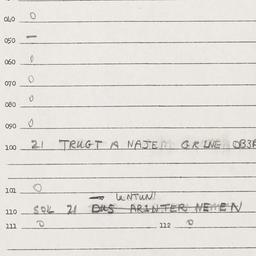 040 0
050 —
060 0
070 0
080 0
090 0
100 21 TRUGT A NAJEM GRUNE
101 0
UNTUNI
110 SOL 21 ARINTER NEMEN
111 0 112 0